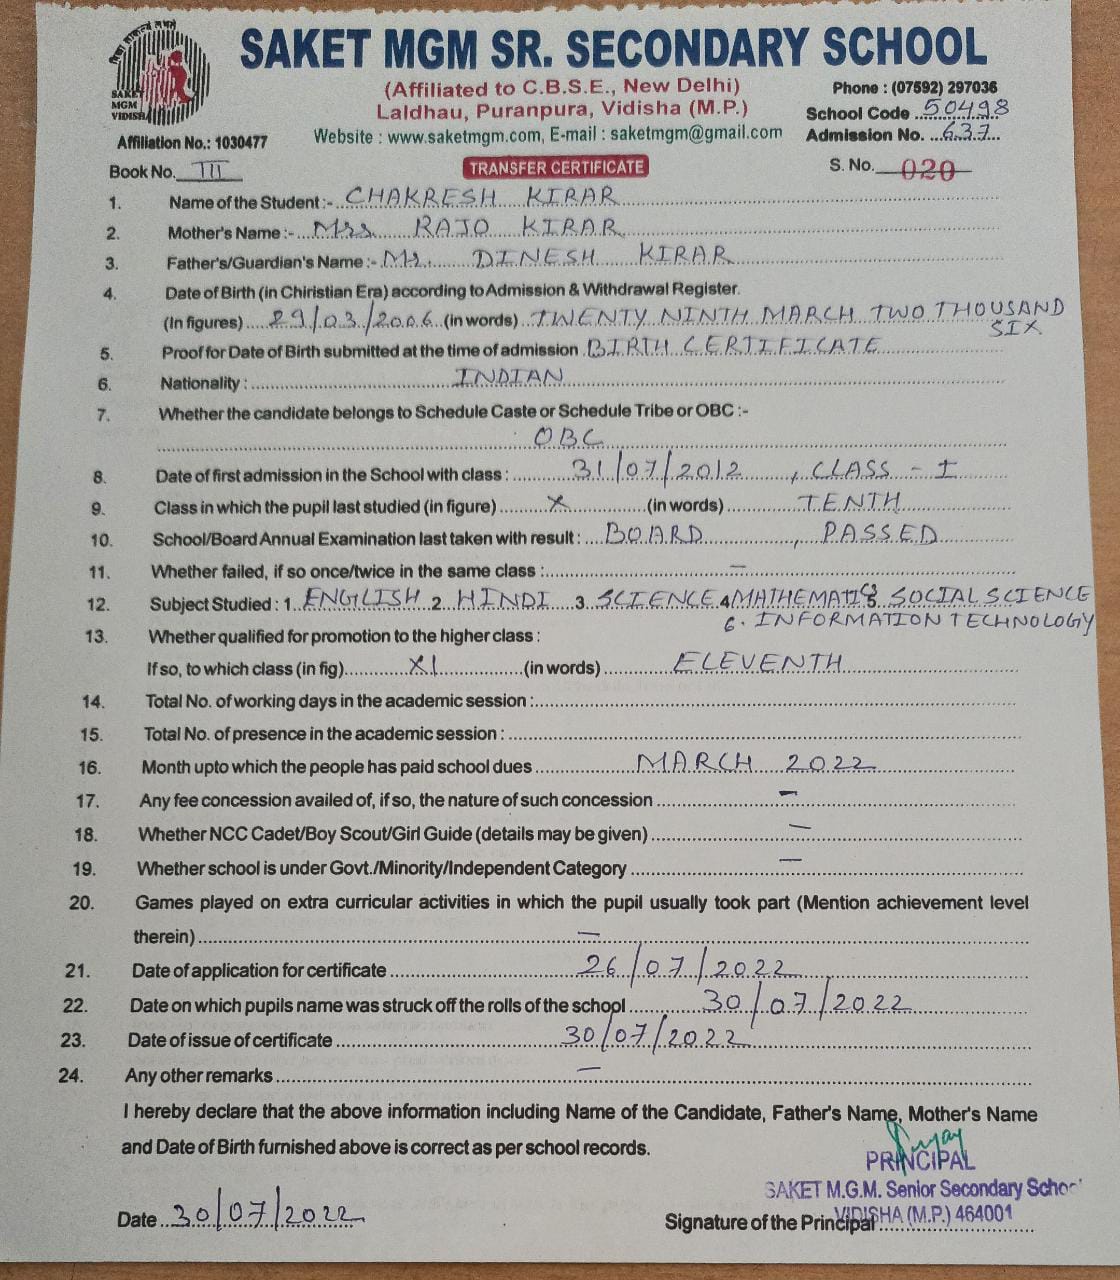 SAKET MGM SR. SECONDARY SCHOOL
(Affiliated to C.B.S.E., New Delhi)
Laldhau, Puranpura, Vidisha (M.P.)
Website : www.saketmgm.com, E-mail : saketmgm@gmail.com
SAKET
MGM
VIDISHA
Phone : (07592) 297036
School Code 50498
Admission No. 637
Affiliation No.: 1030477
Book No. III
TRANSFER CERTIFICATE
S. No. 020
1. Name of the Student :- CHAKRESH KIRAR
2. Mother's Name :- Mrs RAJO KIRAR
3. Father's/Guardian's Name :- Mr. DINESH KIRAR
4. Date of Birth (in Chiristian Era) according to Admission & Withdrawal Register.
(In figures) 29/03/2006 (in words) TWENTY NINTH MARCH TWO THOUSAND
SIX
5. Proof for Date of Birth submitted at the time of admission BIRTH CERTIFICATE
6. Nationality : INDIAN
7. Whether the candidate belongs to Schedule Caste or Schedule Tribe or OBC :-
OBC
8. Date of first admission in the School with class : 31/07/2012, CLASS - I
9. Class in which the pupil last studied (in figure) X (in words) TENTH
10. School/Board Annual Examination last taken with result : BOARD, PASSED
11. Whether failed, if so once/twice in the same class : —
12. Subject Studied : 1. ENGLISH 2. HINDI 3. SCIENCE 4 MATHEMATICS 5. SOCIAL SCIENCE
6. INFORMATION TECHNOLOGY
13. Whether qualified for promotion to the higher class :
If so, to which class (in fig) XI (in words) ELEVENTH
14. Total No. of working days in the academic session :
15. Total No. of presence in the academic session :
16. Month upto which the people has paid school dues MARCH 2022
17. Any fee concession availed of, if so, the nature of such concession —
18. Whether NCC Cadet/Boy Scout/Girl Guide (details may be given) —
19. Whether school is under Govt./Minority/Independent Category —
20. Games played on extra curricular activities in which the pupil usually took part (Mention achievement level
therein) —
21. Date of application for certificate 26/07/2022
22. Date on which pupils name was struck off the rolls of the school 30/07/2022
23. Date of issue of certificate 30/07/2022
24. Any other remarks —
I hereby declare that the above information including Name of the Candidate, Father's Name, Mother's Name
and Date of Birth furnished above is correct as per school records.
PRINCIPAL
SAKET M.G.M. Senior Secondary School
VIDISHA (M.P.) 464001
Date 30/07/2022
Signature of the Principal